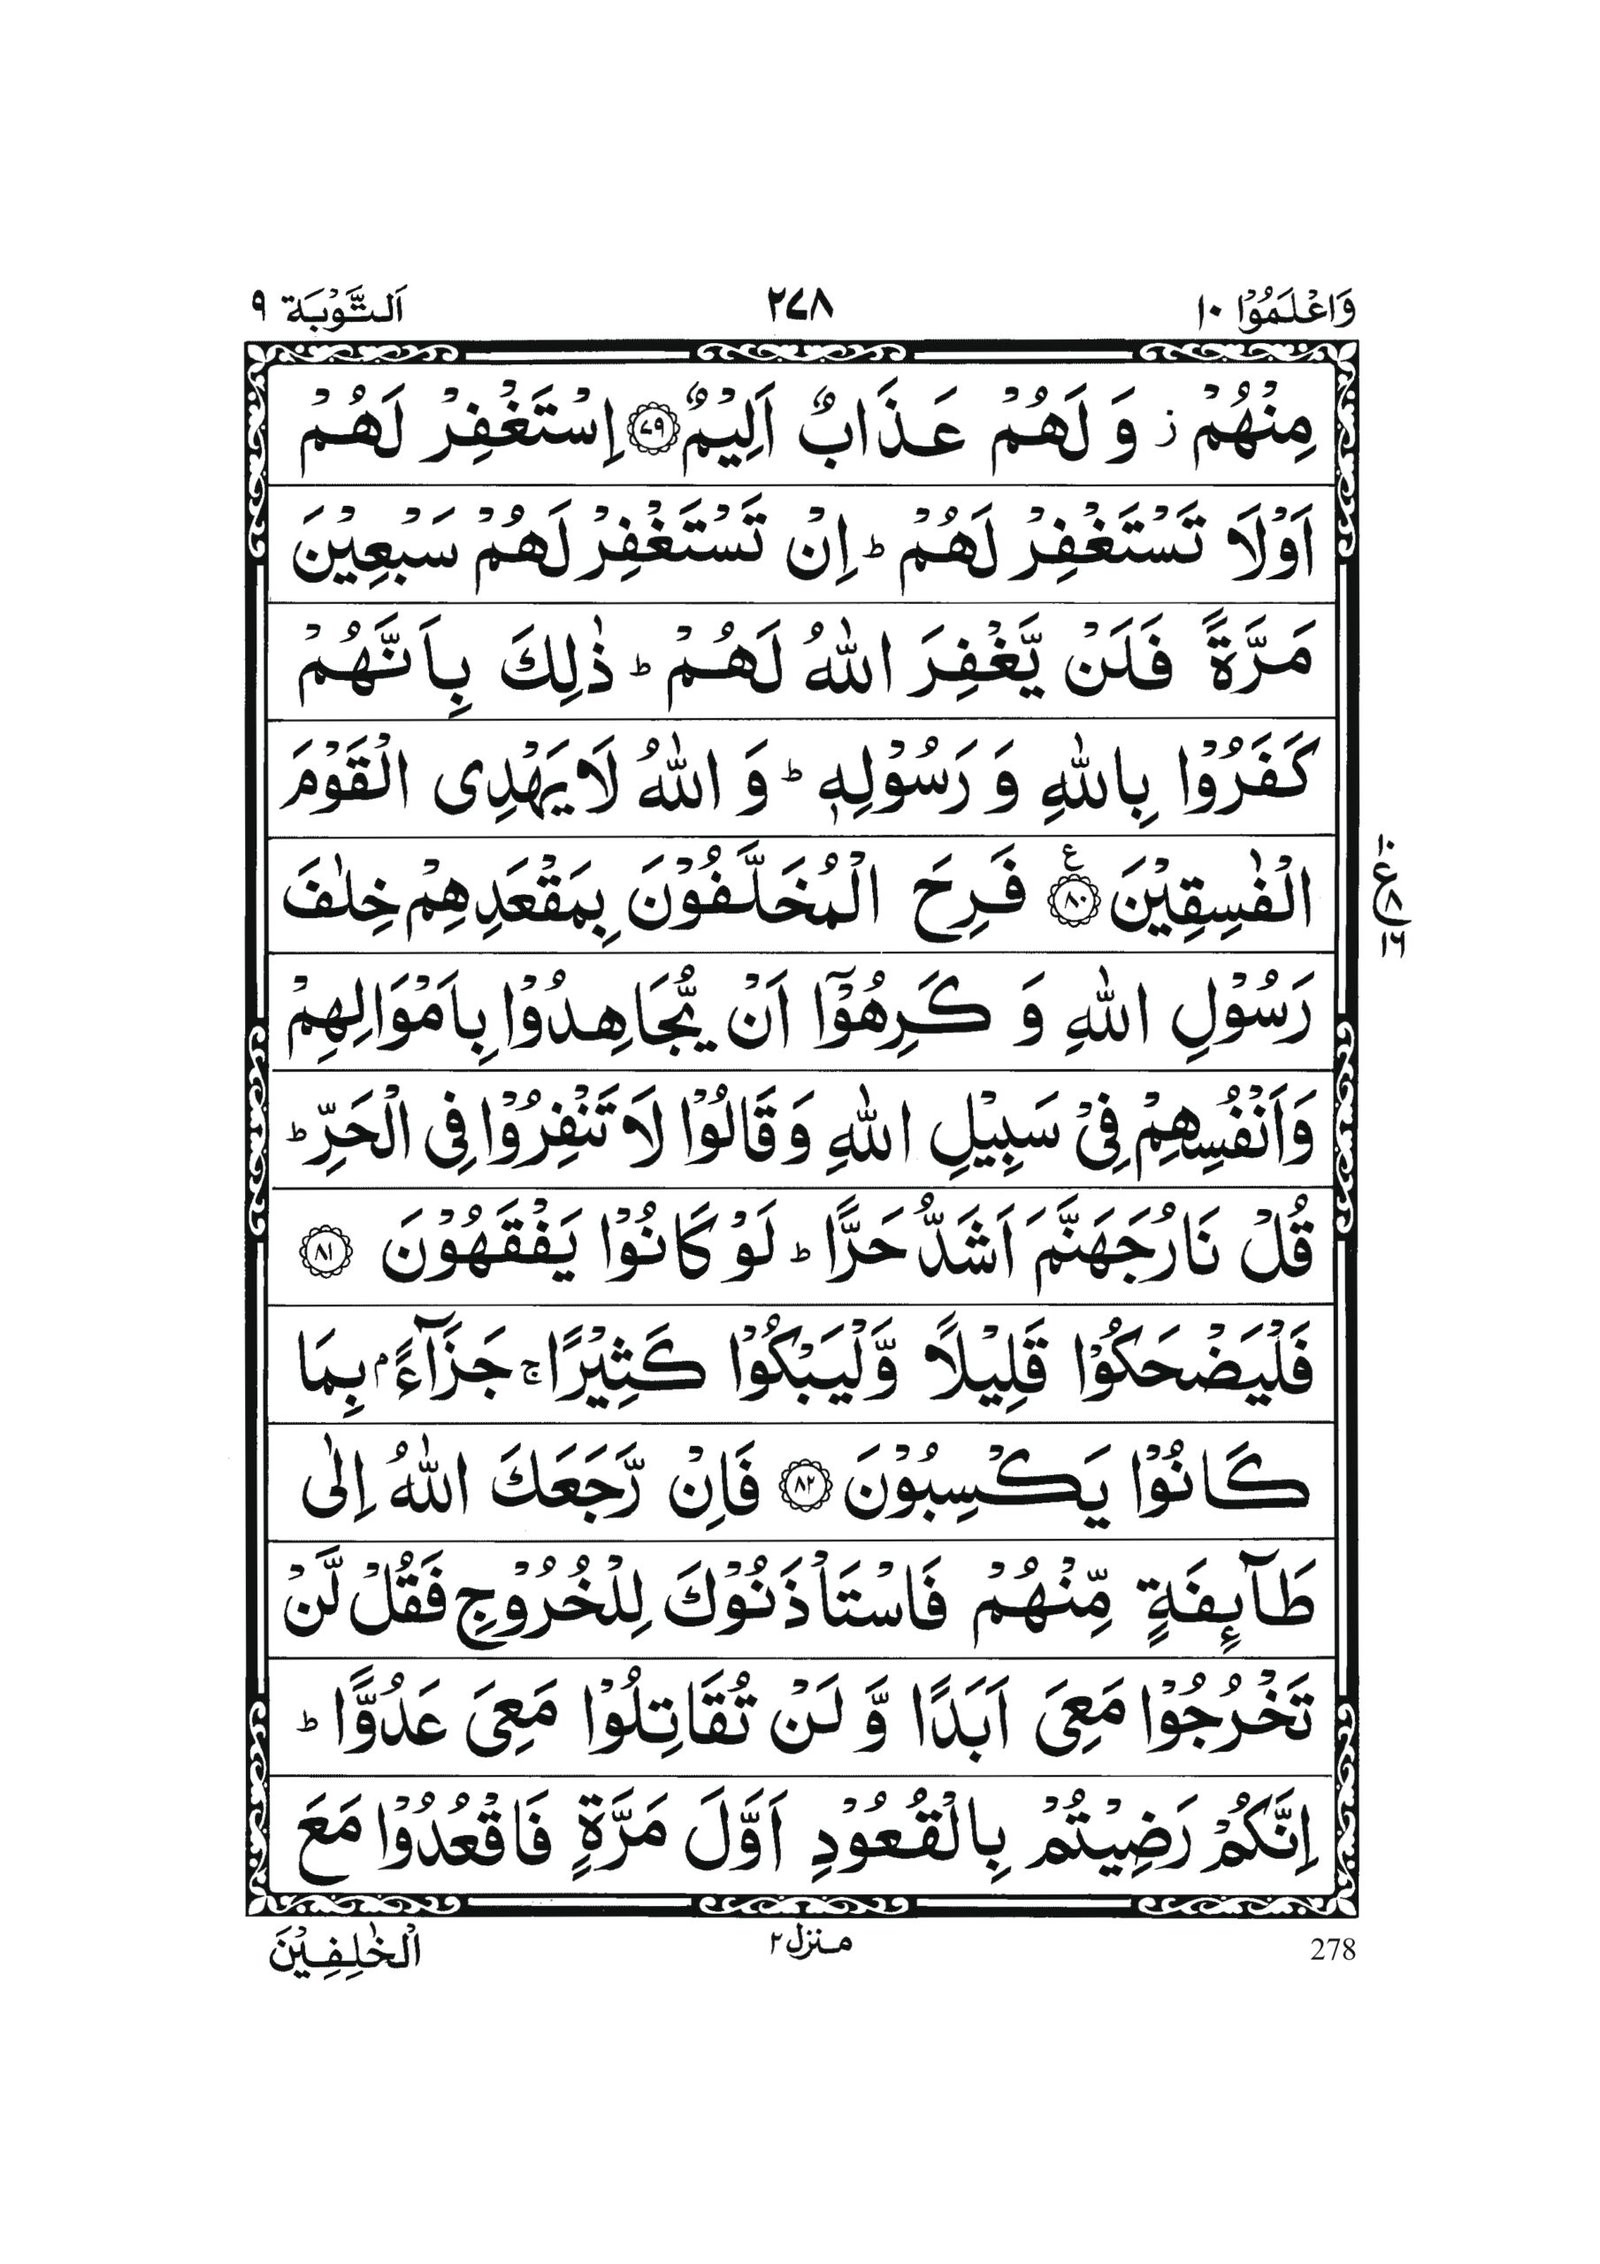 وَاعْلَمُوْا ١٠
٢٧٨
اَلتَّوْبَة ٩
مِنْهُمْ ز وَ لَهُمْ عَذَابٌ اَلِيْمٌ ٧٩ اِسْتَغْفِرْ لَهُمْ
اَوْلَا تَسْتَغْفِرْ لَهُمْ ط اِنْ تَسْتَغْفِرْ لَهُمْ سَبْعِيْنَ
مَرَّةً فَلَنْ يَّغْفِرَ اللّٰهُ لَهُمْ ط ذٰلِكَ بِاَنَّهُمْ
كَفَرُوْا بِاللّٰهِ وَ رَسُوْلِهٖ ط وَ اللّٰهُ لَا يَهْدِى الْقَوْمَ
الْفٰسِقِيْنَ ٨٠ ع فَرِحَ الْمُخَلَّفُوْنَ بِمَقْعَدِهِمْ خِلٰفَ
١٠
ع
٨
١٦
رَسُوْلِ اللّٰهِ وَ كَرِهُوْٓا اَنْ يُّجَاهِدُوْا بِاَمْوَالِهِمْ
وَاَنْفُسِهِمْ فِىْ سَبِيْلِ اللّٰهِ وَ قَالُوْا لَا تَنْفِرُوْا فِى الْحَرِّ ط
قُلْ نَارُ جَهَنَّمَ اَشَدُّ حَرًّا ط لَوْ كَانُوْا يَفْقَهُوْنَ ٨١
فَلْيَضْحَكُوْا قَلِيْلًا وَّلْيَبْكُوْا كَثِيْرًا ج جَزَآءًۢ بِمَا
كَانُوْا يَكْسِبُوْنَ ٨٢ فَاِنْ رَّجَعَكَ اللّٰهُ اِلٰى
طَآئِفَةٍ مِّنْهُمْ فَاسْتَاْذَنُوْكَ لِلْخُرُوْجِ فَقُلْ لَّنْ
تَخْرُجُوْا مَعِىَ اَبَدًا وَّ لَنْ تُقَاتِلُوْا مَعِىَ عَدُوًّا ط
اِنَّكُمْ رَضِيْتُمْ بِالْقُعُوْدِ اَوَّلَ مَرَّةٍ فَاقْعُدُوْا مَعَ
278
منزل ٢
الْخٰلِفِيْنَ